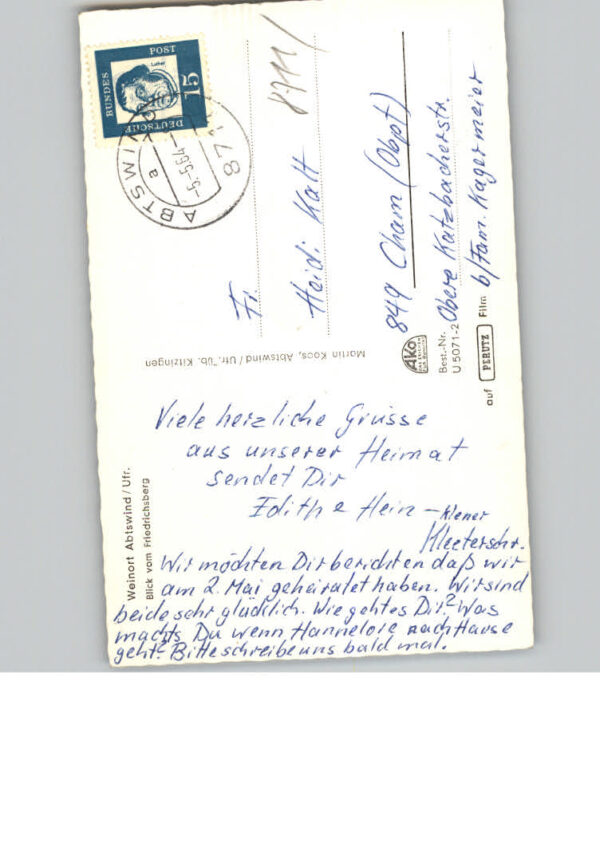 BUNDES
POST
Luther
15
DEUTSCHE
ABTSWIND
871
a
-5.5.64-
8711/
Fr.
Heidi Kalt
849 Cham (Obpf)
Obere Katzbacherstr.
b/Fam. Kagermeier
Martin Koos, Abtswind/Ufr. üb. Kitzingen
AKO
Best.-Nr.
U 5071-2
auf PERUTZ Film
Weinort Abtswind/Ufr.
Blick vom Friedrichsberg
Viele herzliche Grüsse
aus unserer Heimat
sendet Dir
Edith e Hein -
Wir möchten Dir berichten daß wir
am 2. Mai geheiratet haben. Wir sind
beide sehr glücklich. Wie geht es Dir? Was
machts Du wenn Hannelore nach Hause
geht? Bitte schreibe uns bald mal.